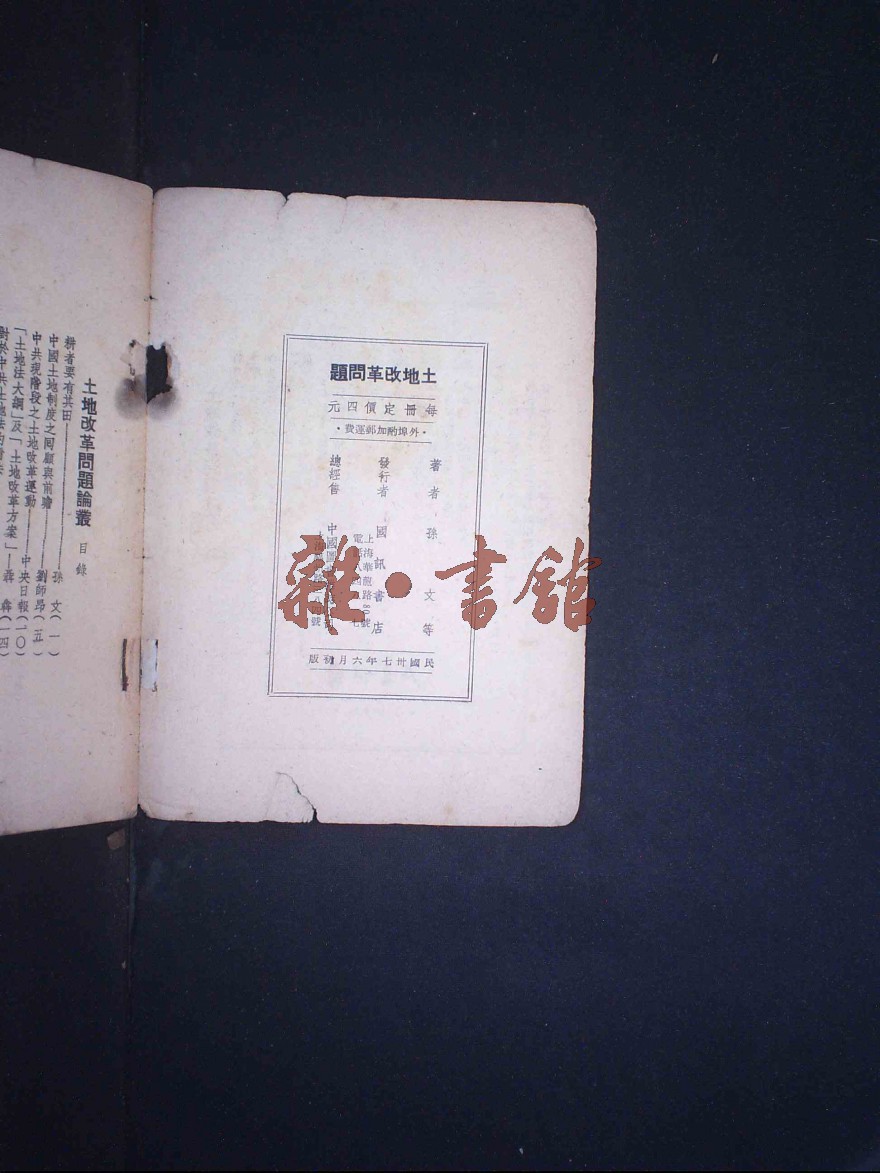 土地改革問題
每冊定價四元
·外埠酌加郵運費·
著者 孫文等
發行者 國訊書店
上海華龍路
電話
總經售 中國圖
民國卅七年六月初版
土地改革問題論叢 目錄
耕者要有其田——孫文(一)
中國土地制度之回顧與前瞻
中共現階段之土地改革運動——劉師昂(五)
「土地法大綱」及「土地改革方案」——中央日報(一〇)
對於中共土地法的看法
雜·書館